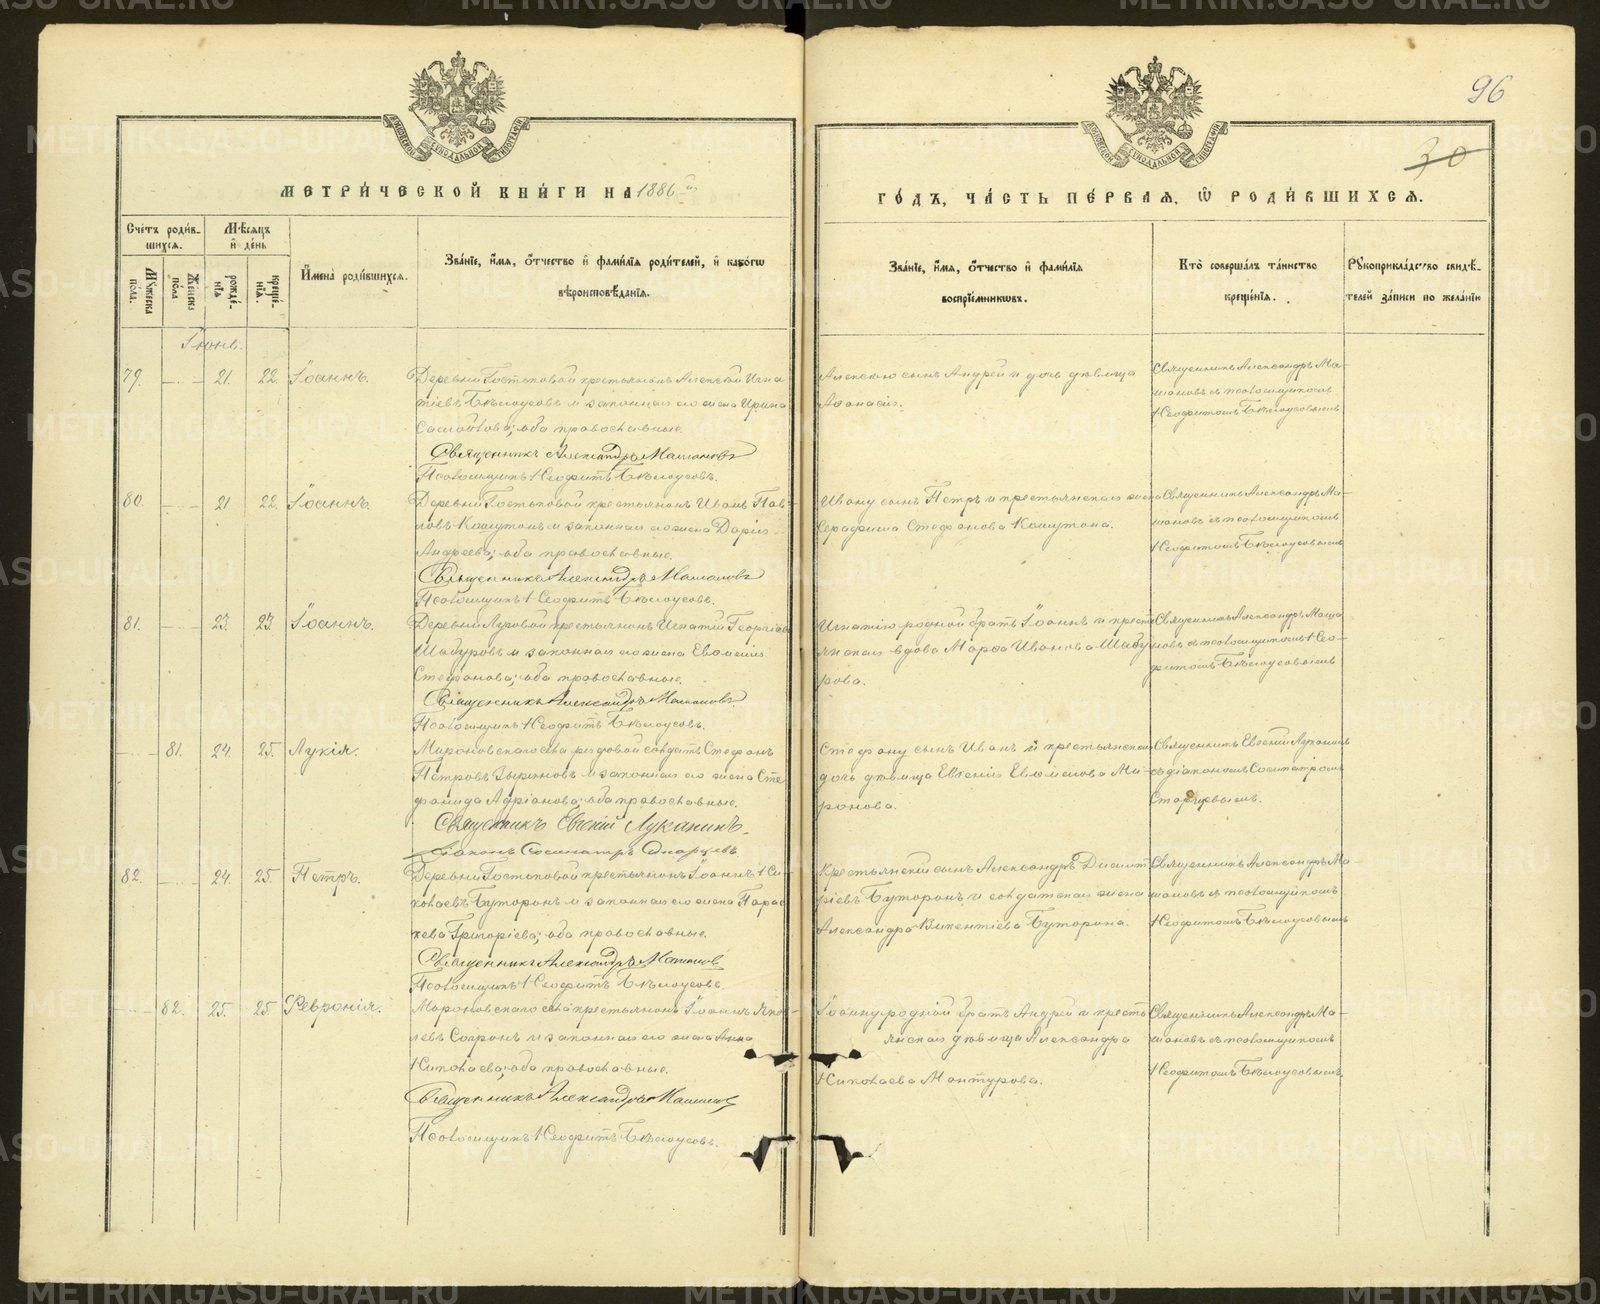 96
30
МЕТРИЧЕСКОЙ КНИГИ НА 1886й
ГОДЪ, ЧАСТЬ ПЕРВАЯ, Ѡ РОДИВШИХСЯ.
Счетъ родив-
шихся.
Мужеска пола.
Женска пола
Мѣсяцъ и день
рожде-нія
креще-нія.
Имена родившихся.
Званіе, имя, отчество и фамилія родителей, и какогѡ
вѣроисповѣданія.
Званіе, имя, отчество и фамилія
воспріемниковъ.
Кто совершалъ таинство
крещенія.
Рукоприкладство свидѣ-
телей записи по желанію
Іюнь.
79. 21. 22. Іоаннъ.
Деревни крестьянинъ Алексѣй Игна
тіевъ Бѣлоусовъ и законная его жена Ирина
оба православные.
Священникъ Александръ
Псаломщикъ Неофитъ Бѣлоусовъ.
Алексѣю сынъ Андрей и дочь дѣвица
Священникъ Александръ Ма-
съ псаломщикомъ
Неофитомъ Бѣлоусовымъ
80. 21 22. Іоаннъ.
Деревни крестьянинъ Иванъ Пав-
ловъ и законная его жена Дарія
Андреева; оба православные.
Священникъ Александръ
Псаломщикъ Неофитъ Бѣлоусовъ.
Ивану сынъ Петръ и крестьянская жена
Серафима Стефанова
Священникъ Александръ Ма-
съ псаломщикомъ
Неофитомъ Бѣлоусовымъ
81. 23. 23. Іоаннъ.
Деревни Луговой крестьянинъ Игнатій Георгіевъ
Шабуровъ и законная его жена Евфимія
Стефанова; оба православные.
Священникъ Александръ
Псаломщикъ Неофитъ Бѣлоусовъ.
Игнатію родной братъ Іоаннъ и кресть
янская вдова Марфа Иванова Шабу
рова.
Священникъ Александръ
съ псаломщикомъ Нео-
фитомъ Бѣлоусовымъ
81. 24. 25. Лукія.
Мироновскаго села рядовой солдатъ Стефанъ
Петровъ Зыряновъ и законная его жена Сте
фанида Адріанова; оба православные.
Священникъ Евгеній Луканинъ.
Діаконъ Сосипатръ Старцевъ
Стефану сынъ Иванъ и крестьянская
дочь дѣвица Евгенія Евфимова Ми-
ронова.
Священникъ Евгеній Луканинъ
съ діакономъ Сосипатромъ
Старцевымъ.
82. 24. 25. Петръ.
Деревни крестьянинъ Іоаннъ Ни-
колаевъ Буторинъ и законная его жена Парас
кева Григоріева; оба православные.
Священникъ Александръ
Псаломщикъ Неофитъ Бѣлоусовъ
Крестьянскій сынъ Александръ Димит
ріевъ Буторинъ и солдатская жена
Александра Викентіева Буторина.
Священникъ Александръ Ма-
съ псаломщикомъ
Неофитомъ Бѣлоусовымъ
82. 25. 25 Февронія.
Мироновскаго села крестьянинъ Іоаннъ Яков-
левъ и законная его жена Анна
Николаева; оба православные.
Священникъ Александръ
Псаломщикъ Неофитъ Бѣлоусовъ.
Іоанну родной братъ Андрей и кресть
янская дѣвица Александра
Николаева Мантурова.
Священникъ Александръ Ма-
съ псаломщикомъ
Неофитомъ Бѣлоусовымъ.
METRIKI.GASO-URAL.RU